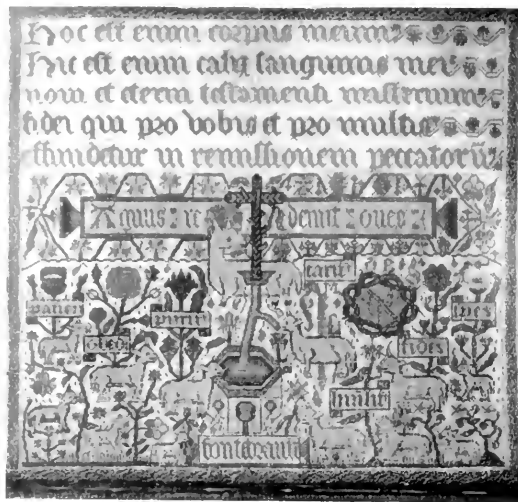 Hoc est enim corpus meum
Hic est enim calix sanguinis mei
novi et eterni testamenti misterium
fidei qui pro vobis et pro multis
effundetur in remissionem peccatorum
Agnus redemit oves
carit
patien
spes
purit
obed
fides
humilit